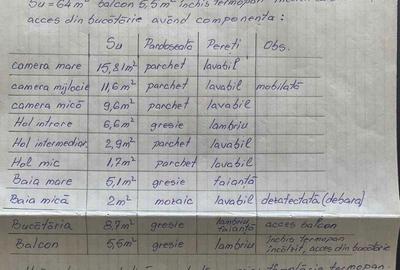 Su = 64 m² balcon 5,5 m² închis termopan
acces din bucătărie având componența :
Su Pardoseală Pereți Obs.
camera mare 15,81m² parchet lavabil
camera mijlocie 11,6m² parchet lavabil mobilată
camera mică 9,6m² parchet lavabil
Hol intrare 6,6m² gresie lambriu
Hol intermediar 2,9m² parchet lavabil
Hol mic 1,7m² parchet lavabil
Baia mare 5,1m² gresie faianță
Baia mică 2m² mozaic lavabil dezafectată (debara)
Bucătăria 8,7m² gresie lambriu, faianță acces balcon
Balcon 5,5m² gresie lambriu închis termopan încălzit, acces din bucătărie
termopan